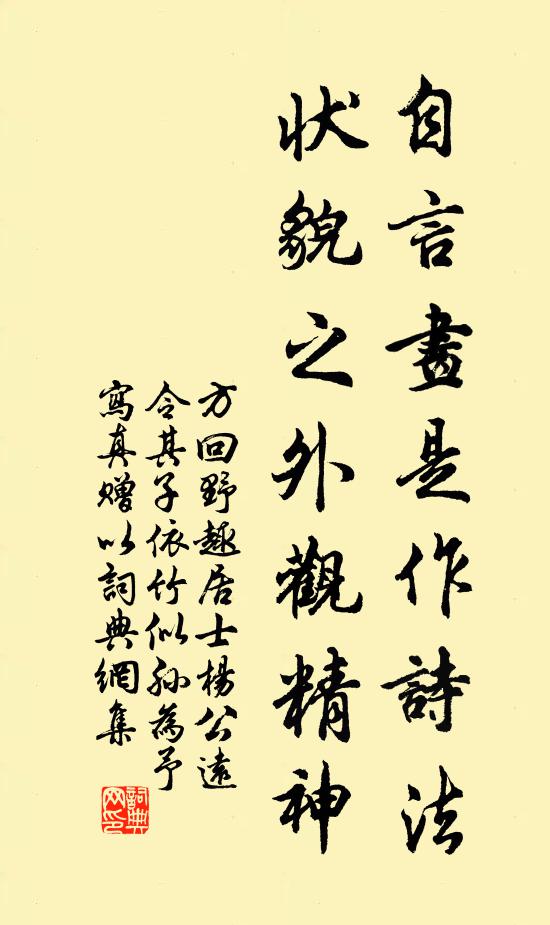 自言畫是作詩法
狀貌之外觀精神
方回野趣居士楊公遠
令其子依竹似孫為予
寫真贈以詞典網集
詞典網印